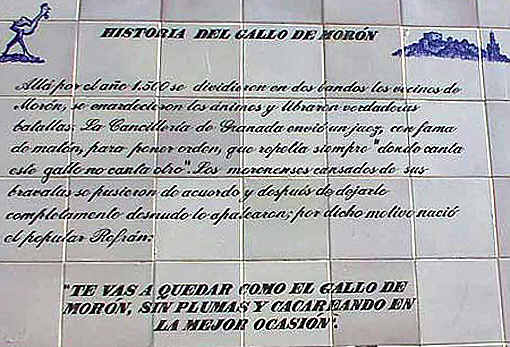 HISTORIA DEL GALLO DE MORÓN
Allá por el año 1.500 se dividieron en dos bandos los vecinos de
Morón, se enardecieron los ánimos y libraron verdaderas
batallas; La Cancillería de Granada envió un juez, con fama
de matón, para poner orden, que repetía siempre "donde canta
este gallo no canta otro". Los moronenses cansados de sus
bravatas se pusieron de acuerdo y después de dejarle
completamente desnudo lo apalearon; por dicho motivo nació
el popular Refrán:
"TE VAS A QUEDAR COMO EL GALLO DE
MORÓN, SIN PLUMAS Y CACAREANDO EN
LA MEJOR OCASION".